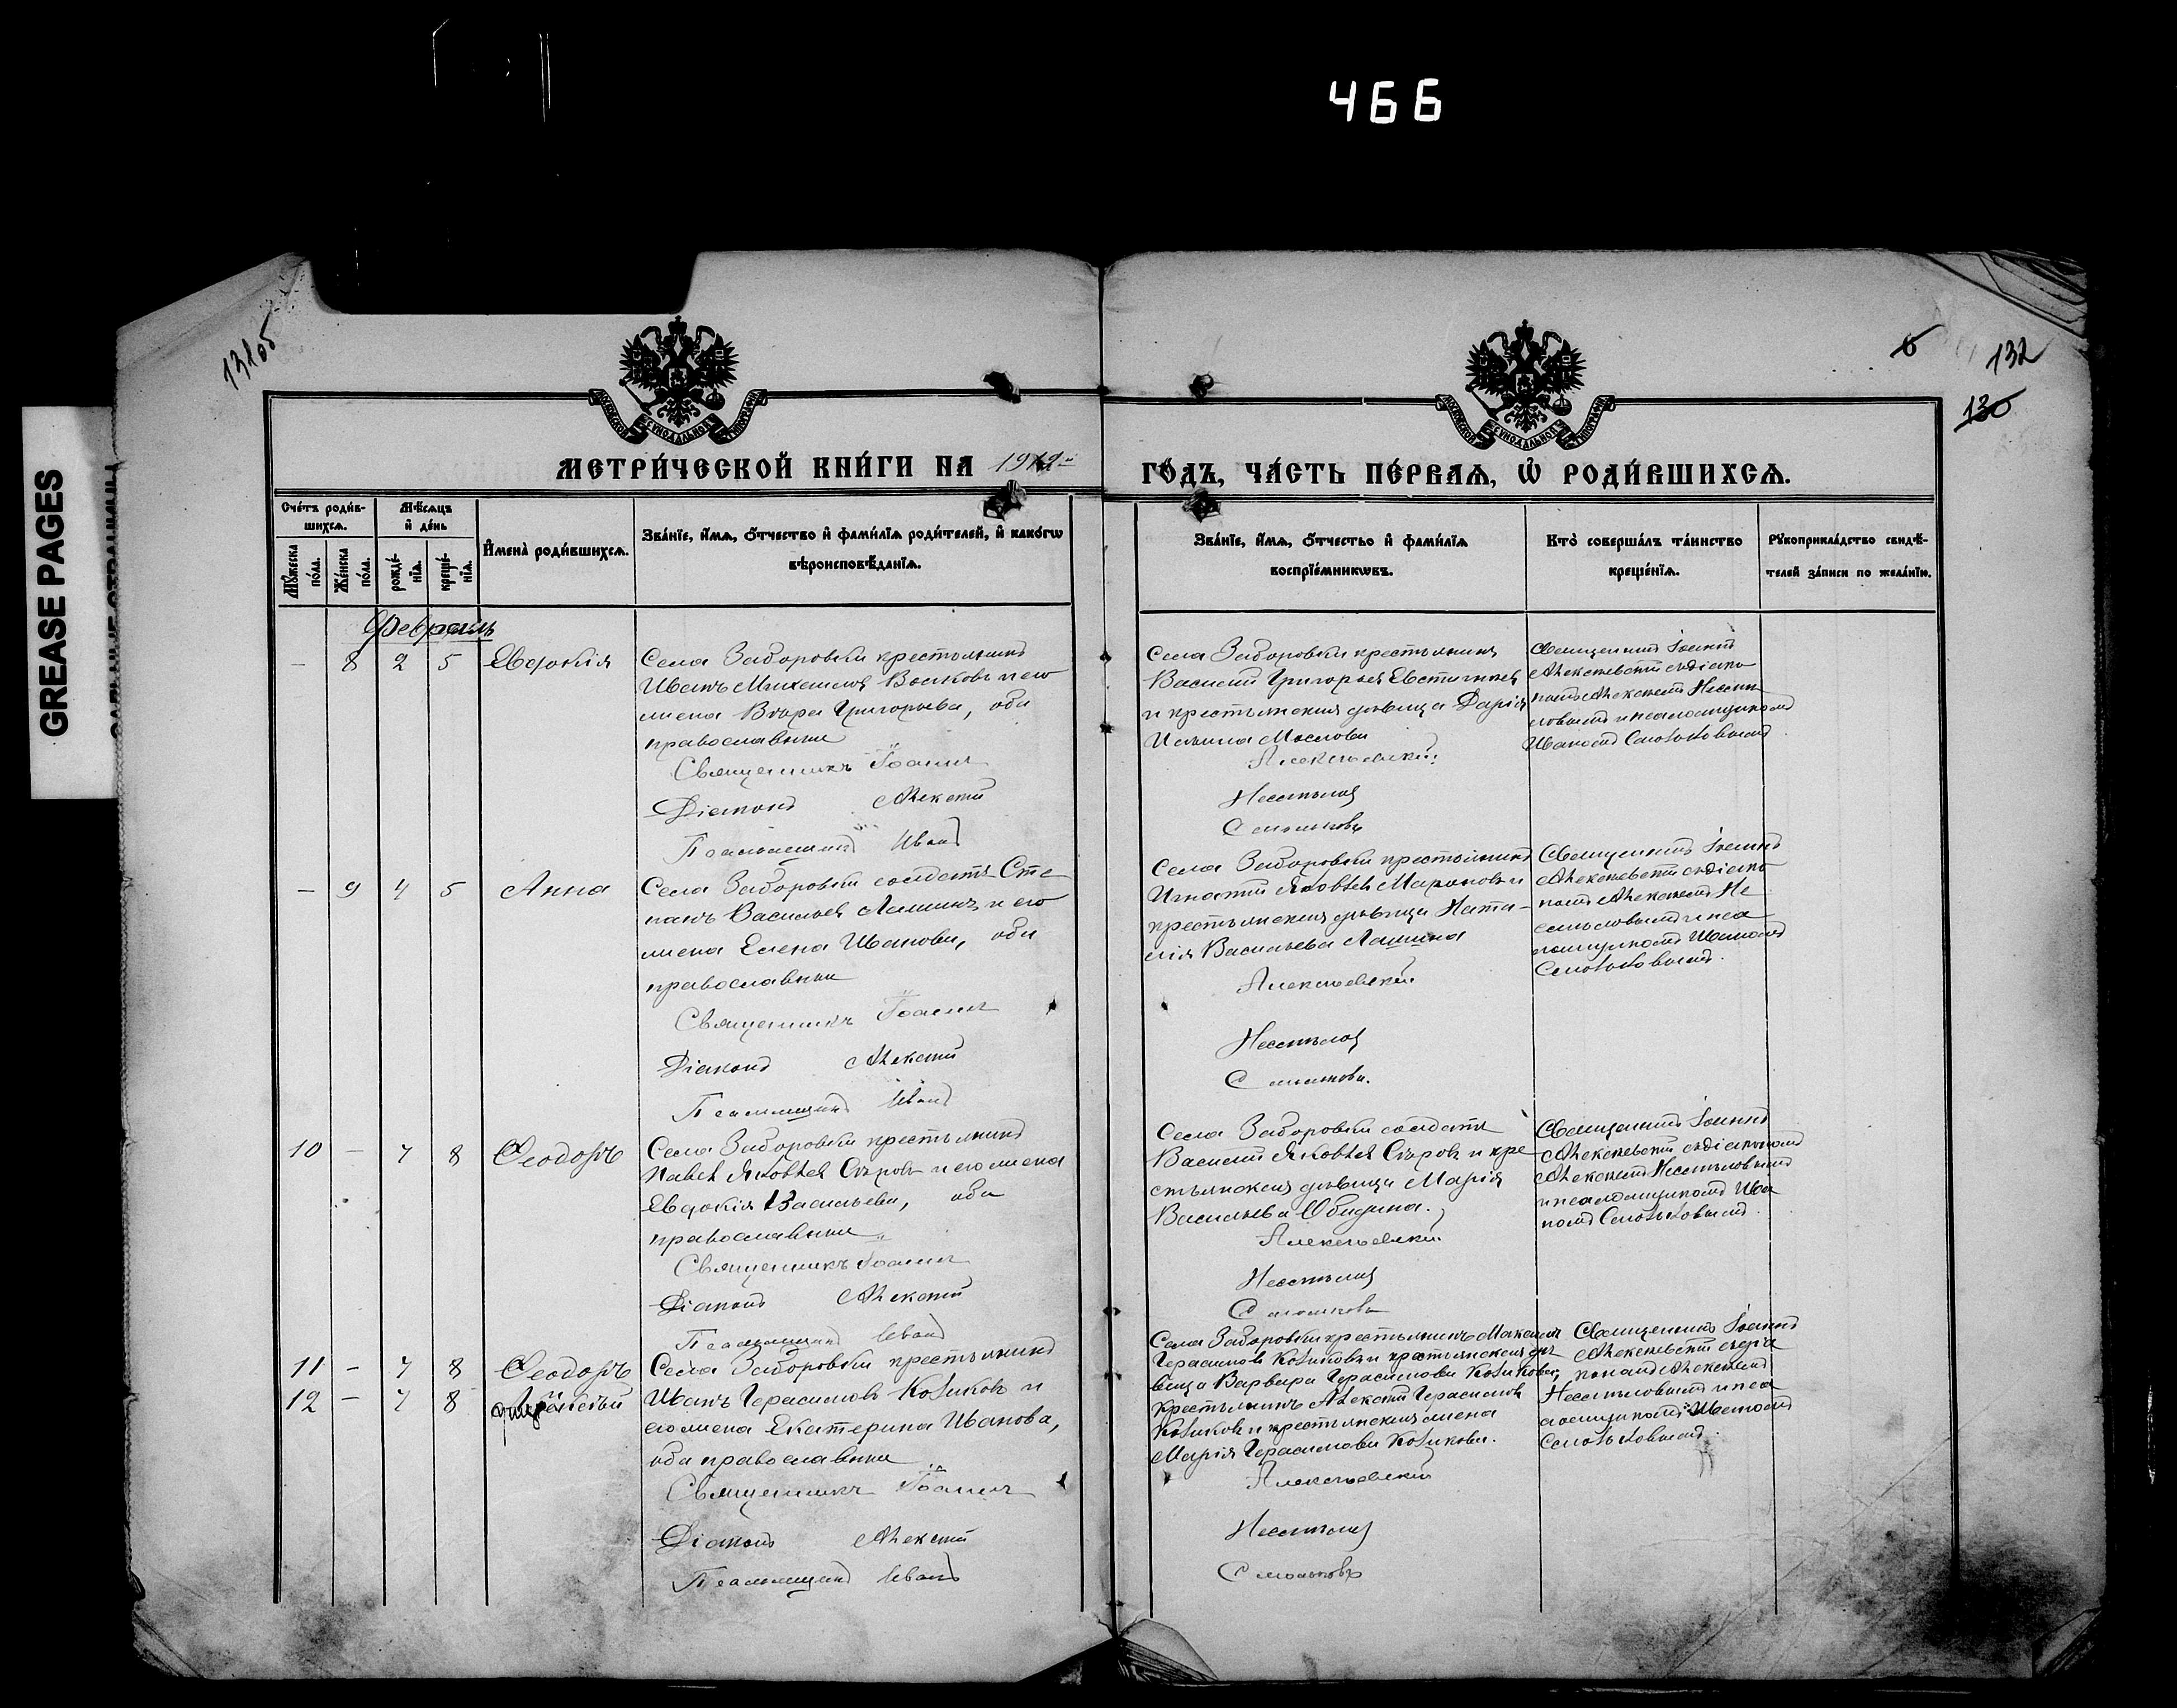 466
131об
6
132
130
GREASE PAGES
МЕТРИ́ЧЕСКОЙ КНИ́ГИ НА 1912й
ГО́ДЪ, ЧА́СТЬ ПЕ́РВАѦ, Ѡ҆ РОДИ́ВШИХСѦ.
Сче́тъ роди́в-
шихсѧ.
Мѣ́сѧцъ
и҆ де́нь
Мꙋ́жеска
по́ла.
Же́нска
по́ла.
рожде́-
нїѧ.
креще́-
нїѧ.
И҆мена̀ роди́вшихсѧ.
Зва́нїе, и҆́мѧ, ѻ҆́тчество и҆ фами́лїѧ роди́телей, и҆ како́гѡ
вѣроисповѣ́данїѧ.
Зва́нїе, и҆́мѧ, ѻ҆́тчество и҆ фами́лїѧ
воспрїе́мникѡвъ.
Кто̀ соверша́лъ та́инство
креще́нїѧ.
Рꙋкоприкла́дство свидѣ́-
телей за́писи по жела́нїю.
Февраль
- 8 2 5 Евдокія
Села Заборовки крестьянинъ
Иванъ Михаиловъ Волковъ и его
жена Вѣра Григорьева, оба
православные
Священникъ Іоаннъ
Діаконъ Алексѣй
Псаломщикъ Иванъ
Села Заборовки крестьянинъ
Василій Григорьевъ Евстигнеев
и крестьянская дѣвица Дарія
Ильина Маслова
Алексѣевскій
Несмѣловъ
Смольковъ
Священникъ Іоаннъ
Алексѣевскій съ діако
номъ Алексѣемъ Несмѣ
ловымъ и псаломщикомъ
Иваномъ Смольковымъ
- 9 4 5 Анна
Села Заборовки солдатъ Сте-
панъ Васильевъ Лашинъ и его
жена Елена Иванова, оба
православные
Священникъ Іоаннъ
Діаконъ Алексѣй
Псаломщикъ Иванъ
Села Заборовки крестьянинъ
Игнатій Яковлев Маркововъ и
крестьянская дѣвица Ната-
лія Васильева Лашина
Алексѣевскій
Несмѣловъ
Смольковъ.
Священникъ Іоаннъ
Алексѣевскій съ діако
номъ Алексѣемъ Не
смѣловымъ и пса
ломщикомъ Иваномъ
Смольковымъ.
10 - 7 8 Ѳеодоръ
Села Заборовки крестьянинъ
Павелъ Яковлев Сѣровъ и его жена
Евдокія Васильева, оба
православные
Священникъ Іоаннъ
Діаконъ Алексѣй
Псаломщикъ Иванъ
Села Заборовки солдатъ
Василій Яковлев Сѣровъ и кре-
стьянская дѣвица Марія
Васильева Обидина.
Алексѣевскій
Несмѣловъ
Смольковъ
Священникъ Іоаннъ
Алексѣевскій съ діакономъ
Алексѣемъ Несмѣловымъ
и псаломщикомъ Ива
номъ Смольковымъ.
11 - 7 8 Ѳеодоръ
12 - 7 8
Села Заборовки крестьянинъ
Иванъ Герасимовъ Косиковъ и
его жена Екатерина Иванова,
оба православные
Священникъ Іоаннъ
Діаконъ Алексѣй
Псаломщикъ Иванъ
Села Заборовки крестьянинъ Максимъ
Герасимов Косиковъ и крестьянская дѣ-
вица Варвара Герасимова Косикова,
крестьянинъ Алексѣй Герасимов
Косиковъ и крестьянская жена
Марія Герасимова Косикова.
Алексѣевскій
Несмѣловъ
Смольковъ
Священникъ Іоаннъ
Алексѣевскій съ діа
кономъ Алексѣемъ
Несмѣловымъ и пса
ломщикомъ Иваномъ
Смольковымъ.